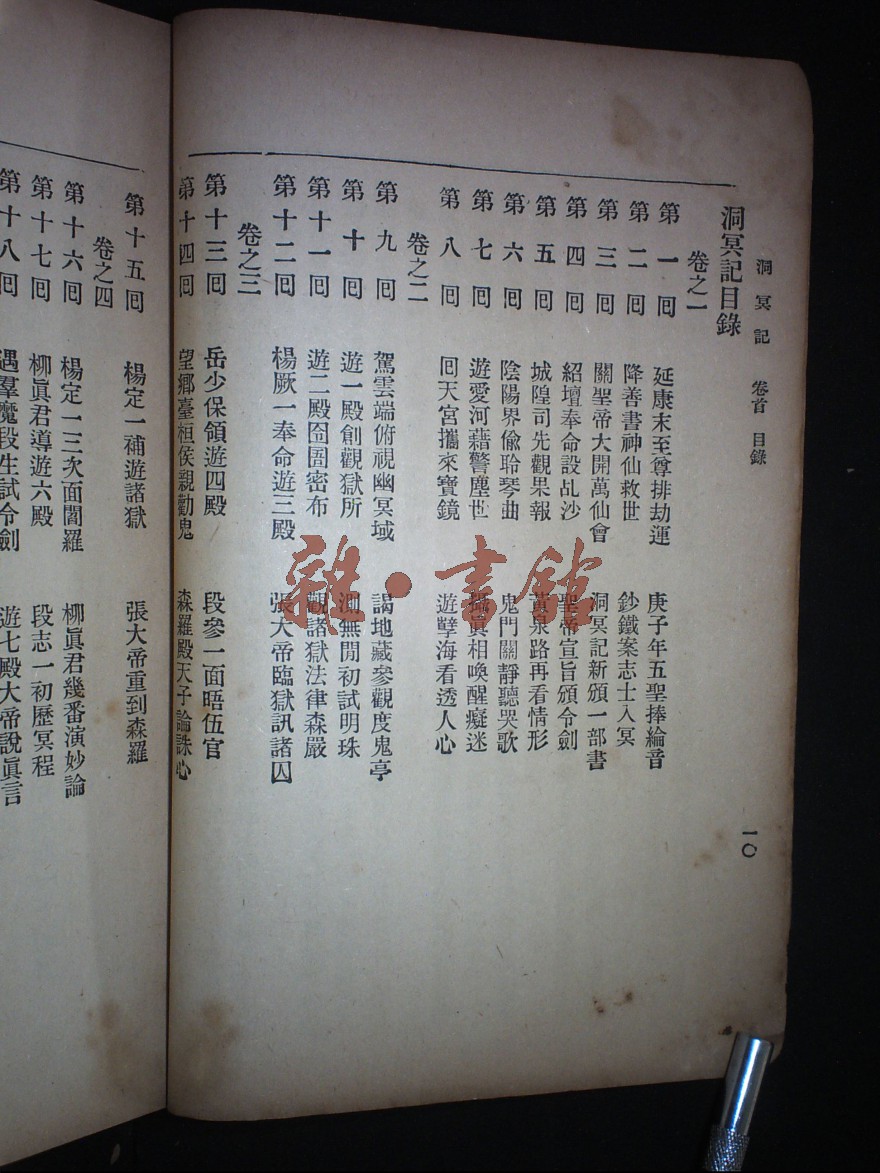 洞冥記 卷首 目錄 一〇
洞冥記目錄
卷之一
第一囘 延康末至尊排劫運 庚子年五聖捧綸音
第二囘 降善書神仙救世 鈔鐵案志士入冥
第三囘 關聖帝大開萬仙會 洞冥記新頒一部書
第四囘 紹壇奉命設乩沙 聖帝宣旨頒令劍
第五囘 城隍司先觀果報 黃泉路再看情形
第六囘 陰陽界偷聆琴曲 鬼門關靜聽哭歌
第七囘 遊愛河藉警塵世 攝眞相喚醒癡迷
第八囘 囘天宮攜來寶鏡 遊孽海看透人心
卷之二
第九囘 駕雲端俯視幽冥域 謁地藏參觀度鬼亭
第十囘 遊一殿創觀獄所 測無間初試明珠
第十一囘 遊二殿囹圄密布 觀諸獄法律森嚴
第十二囘 楊厥一奉命遊三殿 張大帝臨獄訊諸囚
卷之三
第十三囘 岳少保領遊四殿 段參一面晤伍官
第十四囘 望鄉臺桓侯親勸鬼 森羅殿天子論誅心
第十五囘 楊定一補遊諸獄 張大帝重到森羅
卷之四
第十六囘 楊定一三次面閻羅 柳眞君幾番演妙論
第十七囘 柳眞君導遊六殿 段志一初歷冥程
第十八囘 遇羣魔段生試令劍 遊七殿大帝說眞言
雜·書館